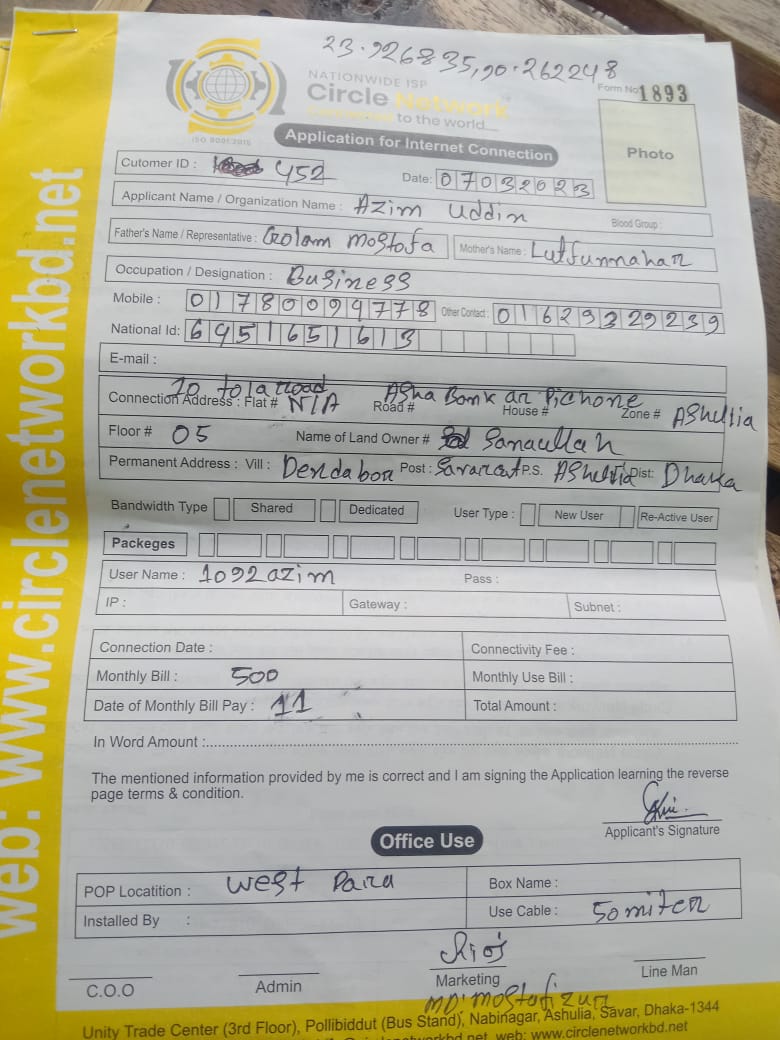 23.926835,90.262248
NATIONWIDE ISP
Circle Network
to the world...
ISO 9001:2015
Form No 1893
Application for Internet Connection
Photo
Cutomer ID : 452 Date: 07032023
Applicant Name / Organization Name : Azim Uddin Blood Group :
Father's Name / Representative : Golam mostofa Mother's Name : Lutfunnahar
Occupation / Designation : Business
Mobile : 01780009778 Other Contact : 01629329239
National Id: 6451651613
E-mail :
10 tola Road Asha Bank ar Pichone
Connection Address : Flat # N/A Road # House # Zone # Ashulia
Floor # 05 Name of Land Owner # Sanaullah
Permanent Address : Vill : Dendabor Post : Savarcant P.S. Ashulia Dist: Dhaka
Bandwidth Type Shared Dedicated User Type : New User Re-Active User
Packeges
User Name : 1092azim Pass :
IP : Gateway : Subnet :
Connection Date : Connectivity Fee :
Monthly Bill : 500 Monthly Use Bill :
Date of Monthly Bill Pay : 11 Total Amount :
In Word Amount :
The mentioned information provided by me is correct and I am signing the Application learning the reverse
page terms & condition.
Applicant's Signature
Office Use
POP Locatition : West Para Box Name :
Installed By : Use Cable : 50 miter
C.O.O Admin Marketing Line Man
MD: mostafizur
Unity Trade Center (3rd Floor), Pollibiddut (Bus Stand), Nabinagar, Ashulia, Savar, Dhaka-1344
web: www.circlenetworkbd.net
web: www.circlenetworkbd.net